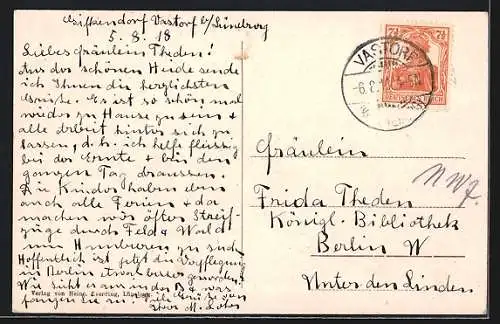 Giffkendorf Vastorf b/Lüneburg
5. 8. 18
Liebes Fräulein Theden!
Aus der schönen Heide sende
ich Ihnen die herzlichsten
Grüße. Es ist so schön, mal
wieder zu Hause zu sein &
alle Arbeit hinter sich zu
lassen, d. h. ich helfe fleissig
bei der Ernte & bin den
ganzen Tag draussen.
Die Kinder haben eben
auch alle Ferien & da
machen wir öfter Streif-
züge durch Feld & Wald
um Himbeeren zu such
Hoffentlich ist jetzt die Verpflegung
in Berlin etwas besser geworden.
Wie sieht es an der B & was
fangen Sie an? Viele Grüße von
Ihrer M.
Verlag von Heinr. Everding, Lüneburg.
7½ 7½
DEUTSCHES REICH
VASTORF
-6.8.18
Fräulein
Frida Theden
Königl. Bibliothek
Berlin W
Unter den Linden
NW7.